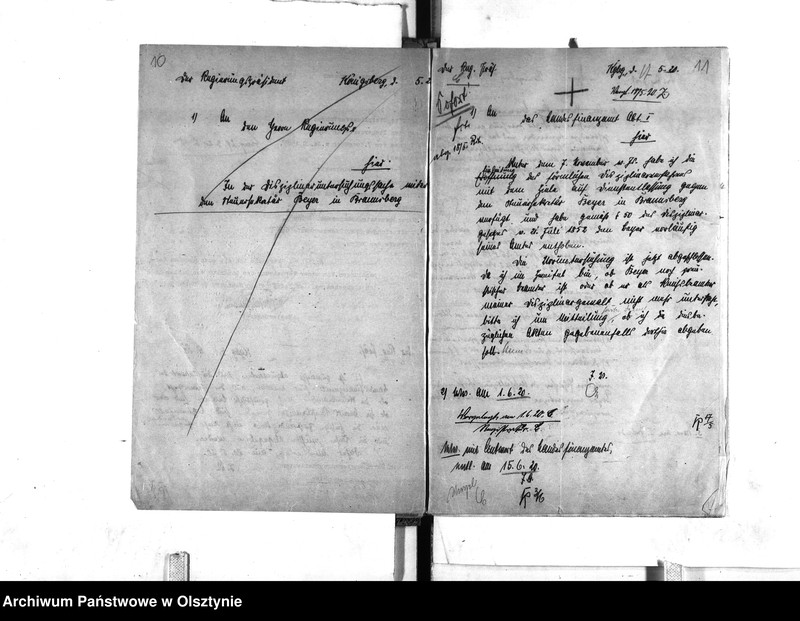 10
Der Regierungspräsident Königsberg, d. 5.2
1) An
den Herrn Regierungs-
hier.
In der Disziplinaruntersuchungssache wider
den Steuersekretär Beyer in Braunsberg
11
Der Reg. Präs. Kbg, d. 17 5. 20.
Sofort!
1) An
das Landesfinanzamt Abt. I
hier
Unter dem 7. November v. Js. habe ich die
Einleitung
des förmlichen Disziplinarverfahrens
mit dem Ziele auf Dienstentlassung gegen
den Steuersekretär Beyer in Braunsberg
verfügt und habe gemäß § 50 des Disziplinar-
gesetzes v. 21. Juli 1852 den Beyer vorläufig
seines Amtes enthoben.
Die Voruntersuchung ist jetzt abgeschlossen.
Da ich im Zweifel bin, ob Beyer noch preu-
ßischer Beamter ist oder ob er als Reichsbeamter
meiner Disziplinargewalt nicht mehr untersteht,
bitte ich um Mitteilung, ob ich die diesbe-
züglichen Akten gegebenenfalls dorthin abgeben
soll.
2) Wv. am 1.6.20.
Vorgelegt am 1.6.20.
Wv. mit Antwort des Landesfinanzamtes,
evtl. am 15.6.20.
Archiwum Państwowe w Olsztynie